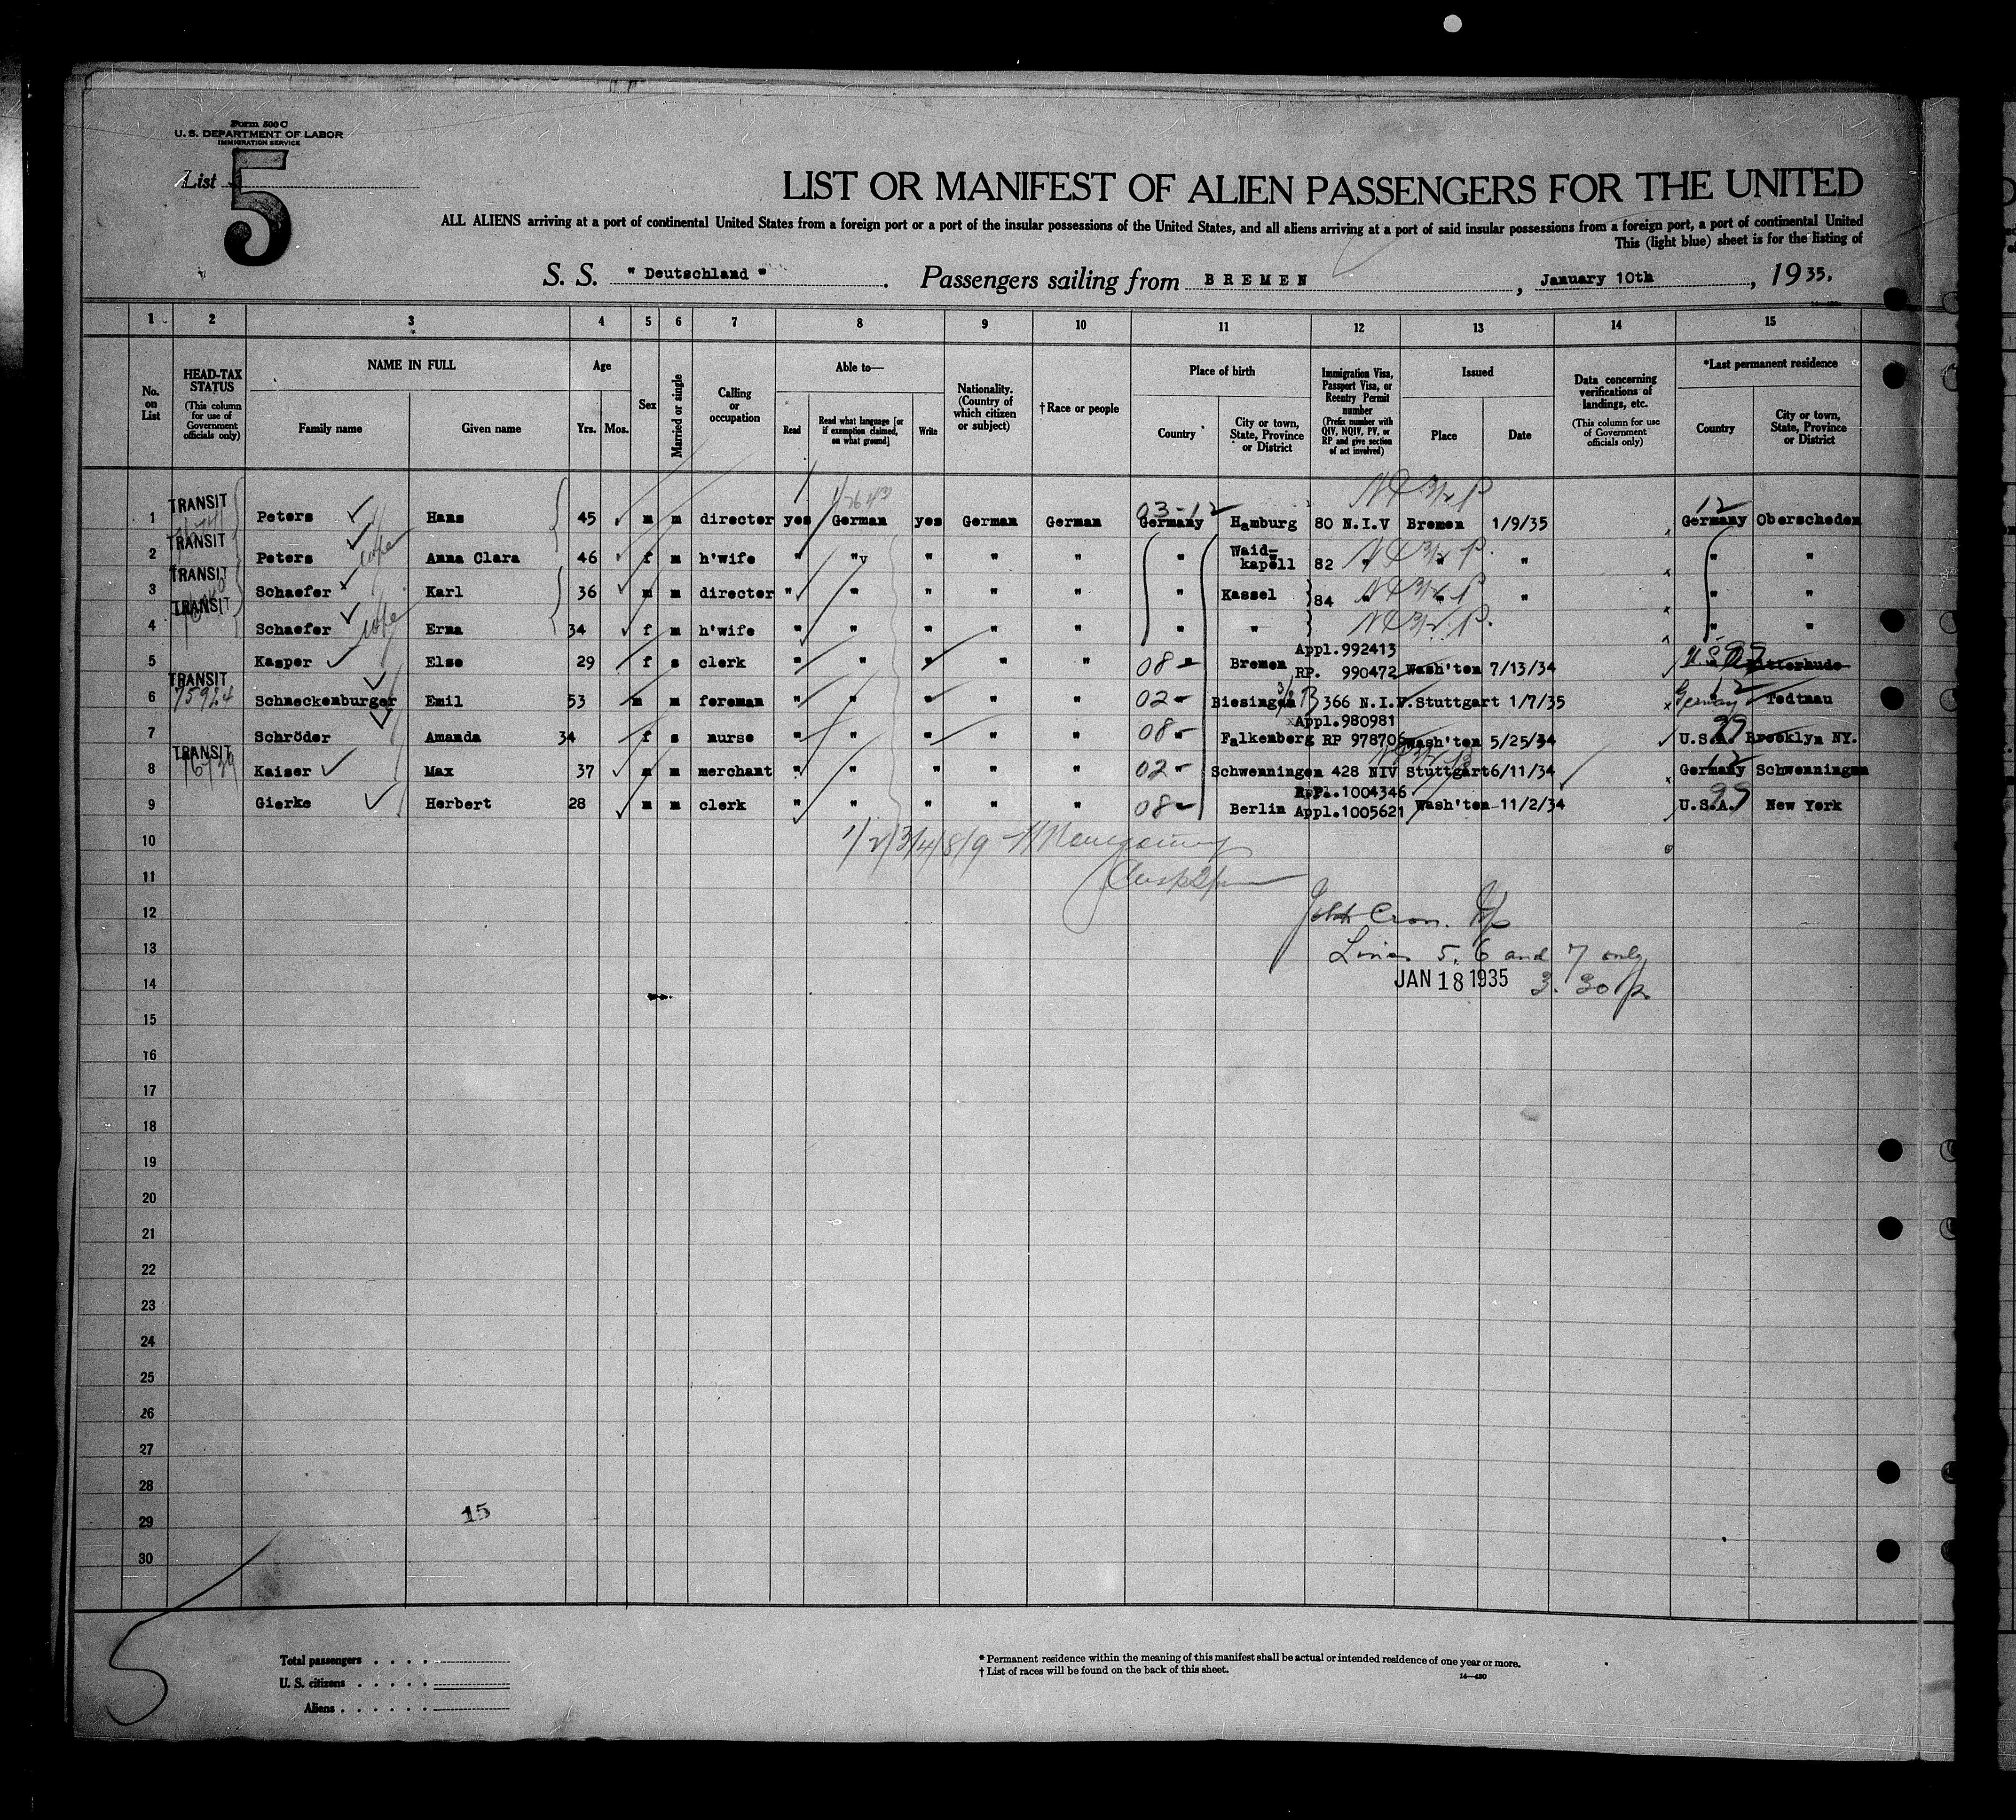 Form 500 C
U. S. DEPARTMENT OF LABOR
IMMIGRATION SERVICE
List 5
LIST OR MANIFEST OF ALIEN PASSENGERS FOR THE UNITED
ALL ALIENS arriving at a port of continental United States from a foreign port or a port of the insular possessions of the United States, and all aliens arriving at a port of said insular possessions from a foreign port, a port of continental United
This (light blue) sheet is for the listing of
S. S. " Deutschland " . Passengers sailing from BREMEN , January 10th , 19 35.
1 2 3 4 5 6 7 8 9 10 11 12 13 14 15
No. on List
HEAD-TAX STATUS (This column for use of Government officials only)
NAME IN FULL
Family name Given name
Age
Yrs. Mos.
Sex
Married or single
Calling or occupation
Able to—
Read Read what language [or if exemption claimed, on what ground] Write
Nationality. (Country of which citizen or subject)
†Race or people
Place of birth
Country City or town, State, Province or District
Immigration Visa, Passport Visa, or Reentry Permit number (Prefix number with QIV, NQIV, PV, or RP and give section of act involved)
Issued
Place Date
Data concerning verifications of landings, etc. (This column for use of Government officials only)
*Last permanent residence
Country City or town, State, Province or District
1 TRANSIT Peters Hans 45 m m director yes German yes German German 03-12 Germany Hamburg 80 N.I.V Bremen 1/9/35 12 Germany Oberscheden
2 TRANSIT Peters Anna Clara 46 f m h'wife " " " " " " Waid-kapell 82 " " " " "
3 TRANSIT Schaefer Karl 36 m m director " " " " " " Kassel 84 " " " " "
4 TRANSIT Schaefer Erna 34 f m h'wife " " " " " " " " "
5 Kasper Else 29 f s clerk " " " " " 08- Bremen Appl.992413 RP. 990472 Wash'ton 7/13/34 U.S. 99 Ritterhude
6 TRANSIT 75924 Schneckenburger Emil 53 m m foreman " " " " " 02- Biesingen 366 N.I.V. Stuttgart 1/7/35 12 Germany Todtnau
7 Schröder Amanda 34 f s nurse " " " " " 08- Falkenberg Appl.980981 RP 978706 Wash'ton 5/25/34 U.S.A. 99 Brooklyn NY.
8 TRANSIT Kaiser Max 37 m m merchant " " " " " 02- Schwenningen 428 NIV Stuttgart 6/11/34 12 Germany Schwenningen
9 Gierke Herbert 28 m m clerk " " " " " 08- Berlin 1004346 Appl.1005621 Wash'ton 11/2/34 U.S.A. 99 New York
10
1/2/3/4/8/9
11
12
13
Lines 5, 6 and 7 only
14
JAN 18 1935 3.30 p.
15
16
17
18
19
20
21
22
23
24
25
26
27
28
29
15
30
5
Total passengers . . . .
U. S. citizens . . . . .
Aliens . . . . . .
* Permanent residence within the meaning of this manifest shall be actual or intended residence of one year or more.
† List of races will be found on the back of this sheet.
14—420